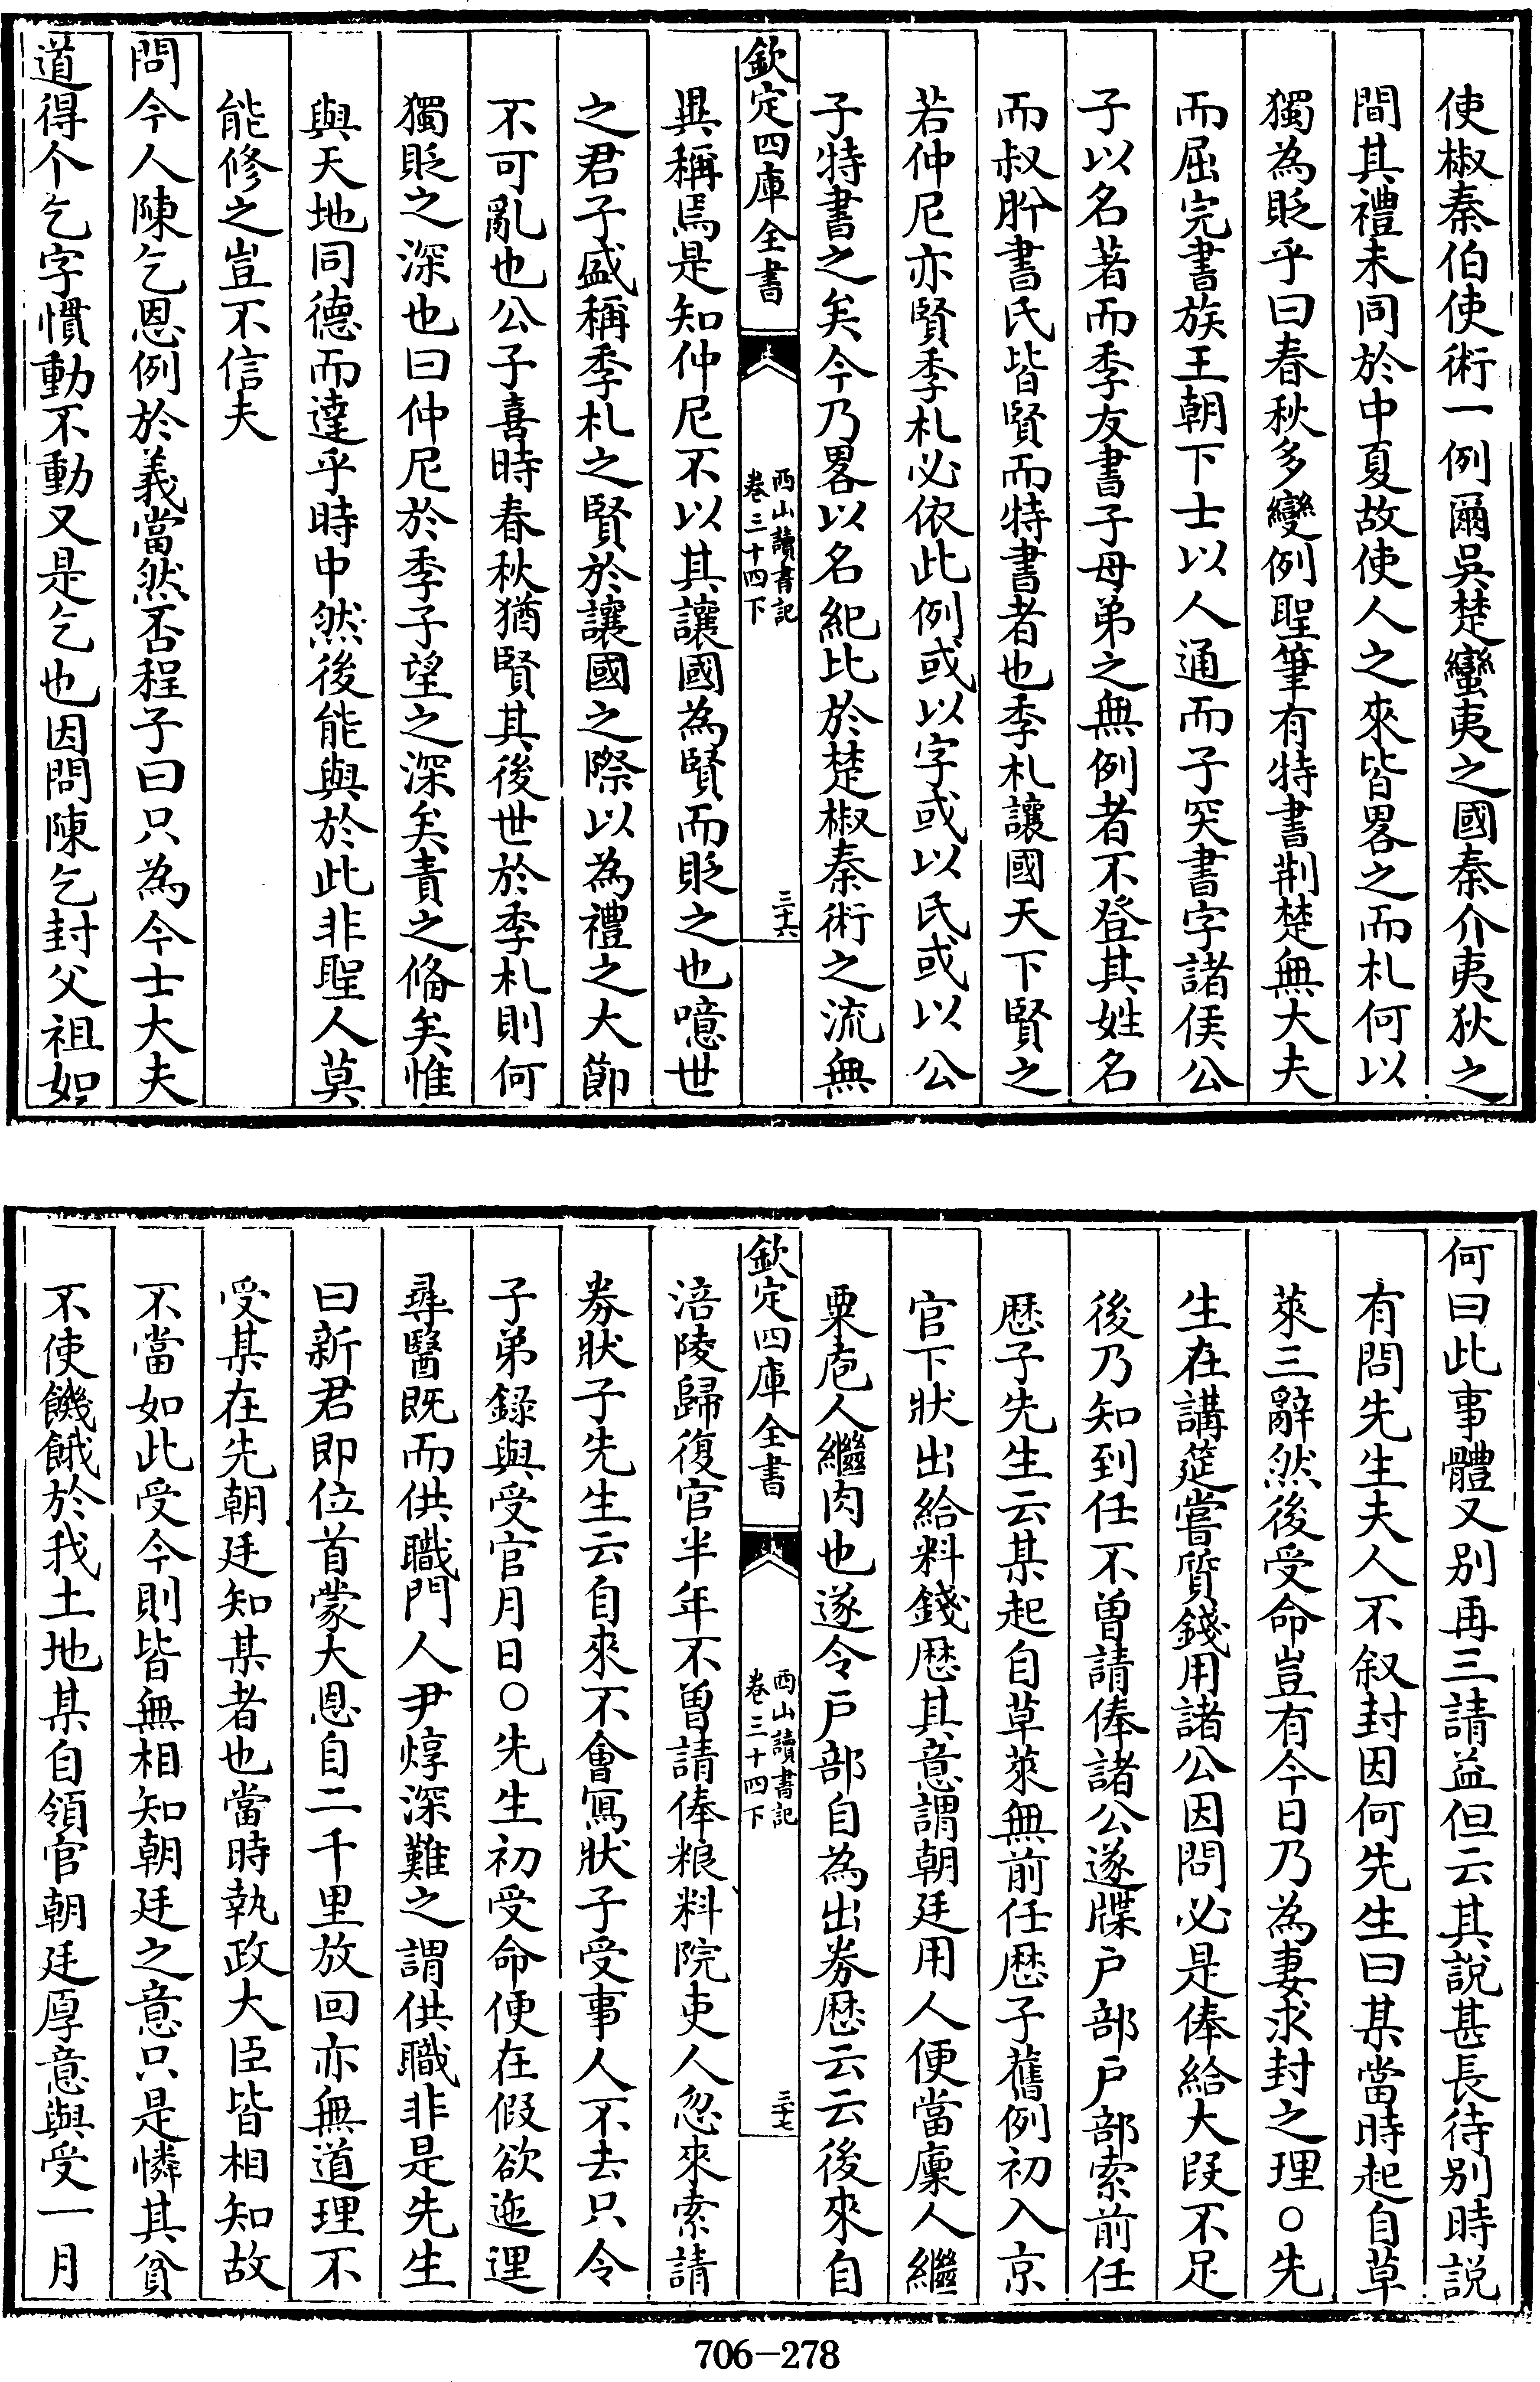 使椒秦伯使術一例爾吳楚蠻夷之國秦介夷狄之
間其禮未同於中夏故使人之來皆畧之而札何以
獨為貶乎曰春秋多變例聖筆有特書荆楚無大夫
而屈完書族王朝下士以人通而子突書字諸侯公
子以名著而季友書子母弟之無例者不登其姓名
而叔肸書氏皆賢而特書者也季札讓國天下賢之
若仲尼亦賢季札必依此例或以字或以氏或以公
子特書之矣今乃畧以名紀比於楚椒秦術之流無
欽定四庫全書
西山讀書記
卷三十四下
三十六
異稱焉是知仲尼不以其讓國為賢而貶之也噫世
之君子盛稱季札之賢於讓國之際以為禮之大節
不可亂也公子喜時春秋猶賢其後世於季札則何
獨貶之深也曰仲尼於季子望之深矣責之備矣惟
與天地同德而達乎時中然後能與於此非聖人莫
能修之豈不信夫
問今人陳乞恩例於義當然否程子曰只為今士大夫
道得个乞字慣動不動又是乞也因問陳乞封父祖如
何曰此事體又别再三請益但云其説甚長待别時説
有問先生夫人不叙封因何先生曰某當時起自草
萊三辭然後受命豈有今日乃為妻求封之理○先
生在講筵嘗質錢用諸公因問必是俸給大叚不足
後乃知到任不曾請俸諸公遂牒户部户部索前任
厯子先生云某起自草萊無前任厯子舊例初入京
官下狀出給料錢厯其意謂朝廷用人便當廩人繼
粟庖人繼肉也遂令户部自為出券厯云云後來自
欽定四庫全書
西山讀書記
卷三十四下
三十七
涪陵歸復官半年不曾請俸粮料院吏人忽來索請
券狀子先生云自來不會寫狀子受事人不去只令
子弟録與受官月日○先生初受命便在假欲迤邐
尋醫既而供職門人尹焞深難之謂供職非是先生
曰新君即位首蒙大恩自二千里放回亦無道理不
受某在先朝廷知某者也當時執政大臣皆相知故
不當如此受今則皆無相知朝廷之意只是憐其貧
不使饑餓於我土地某自領官朝廷厚意與受一月
706-278